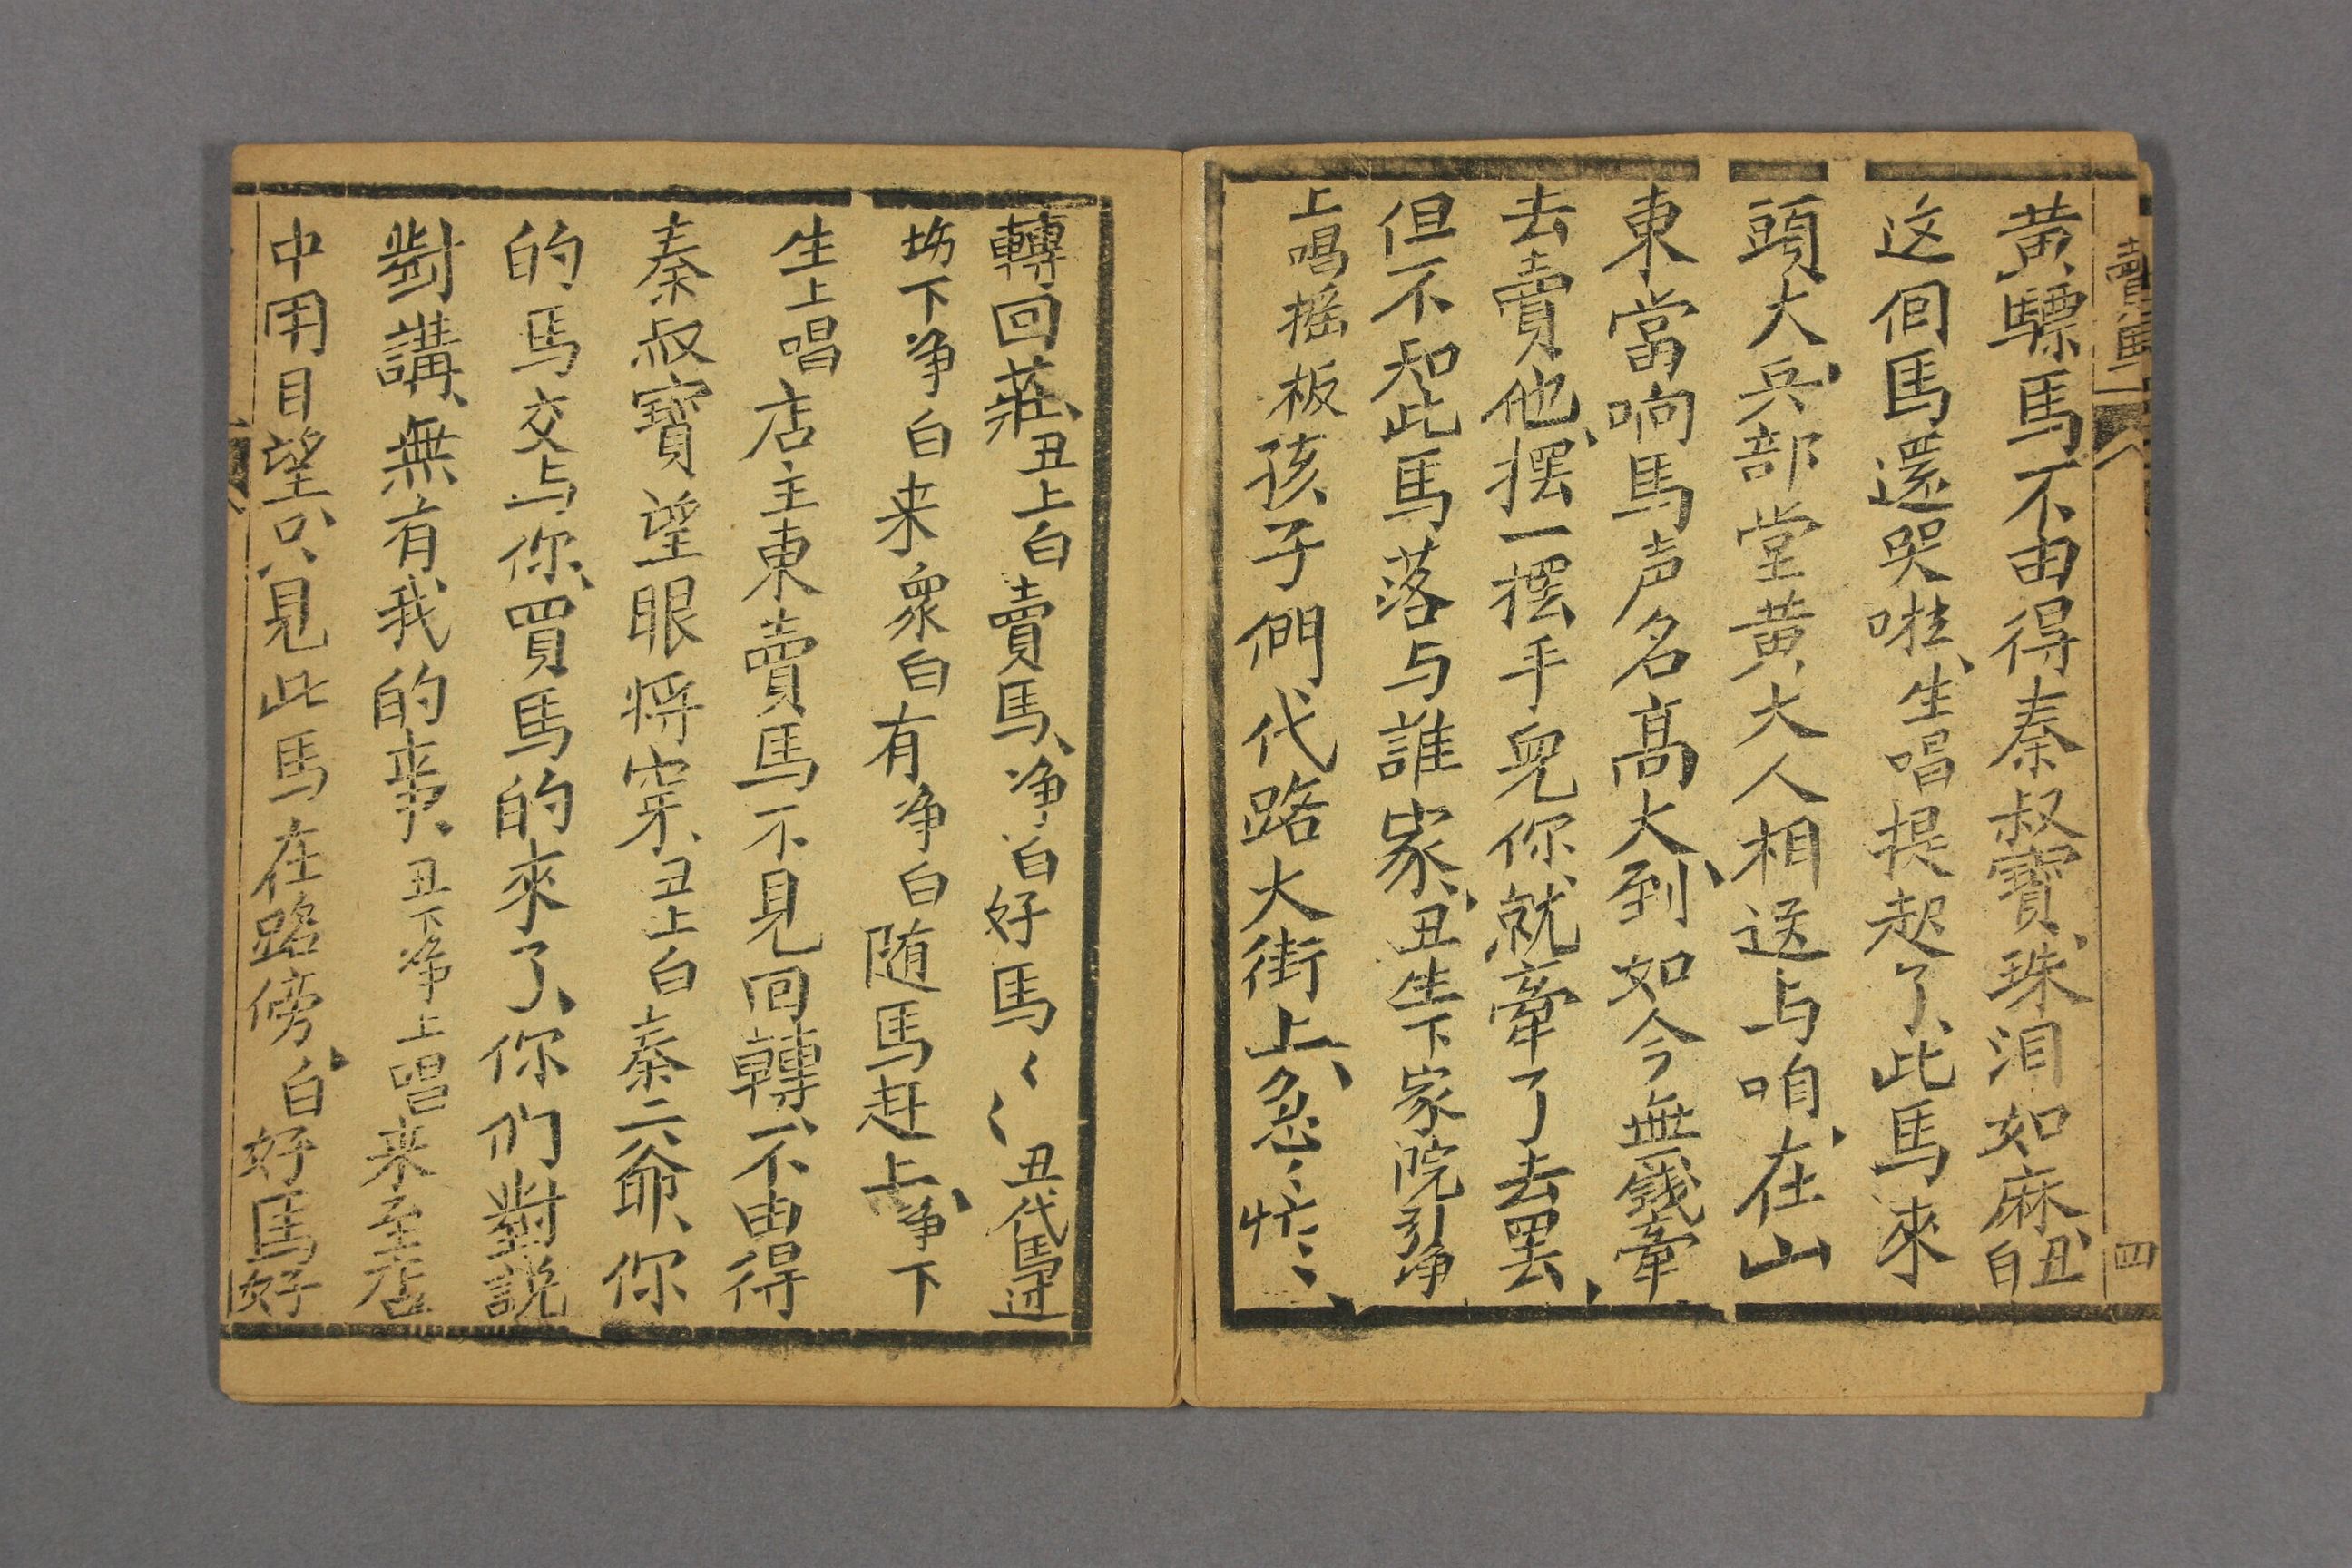 賣馬
四
黃驃馬不由得秦叔寶、珠泪如麻、丑白
这個馬還哭啦、生唱提起了、此馬來
頭大、兵部堂黃大人相送与咱、在山
東當响馬声名高大、到如今無錢牽
去賣他、摆一摆手児你就牽了去罢、
但不知此馬落与誰家、丑生下家院引净
上唱摇板孩子們代路大街上、急〻忙〻、
轉回莊、丑上白賣馬、净白好馬〻〻丑代馬过
坊下净白来衆白有净白随馬赶上、净下
生上唱店主東賣馬不見回轉、不由得
秦叔寶望眼将穿、丑上白秦二爺、你
的馬交与你、買馬的來了、你们對説
對講、無有我的事、丑下净上唱来至店
中用目望、只見此馬在路傍、白好馬好